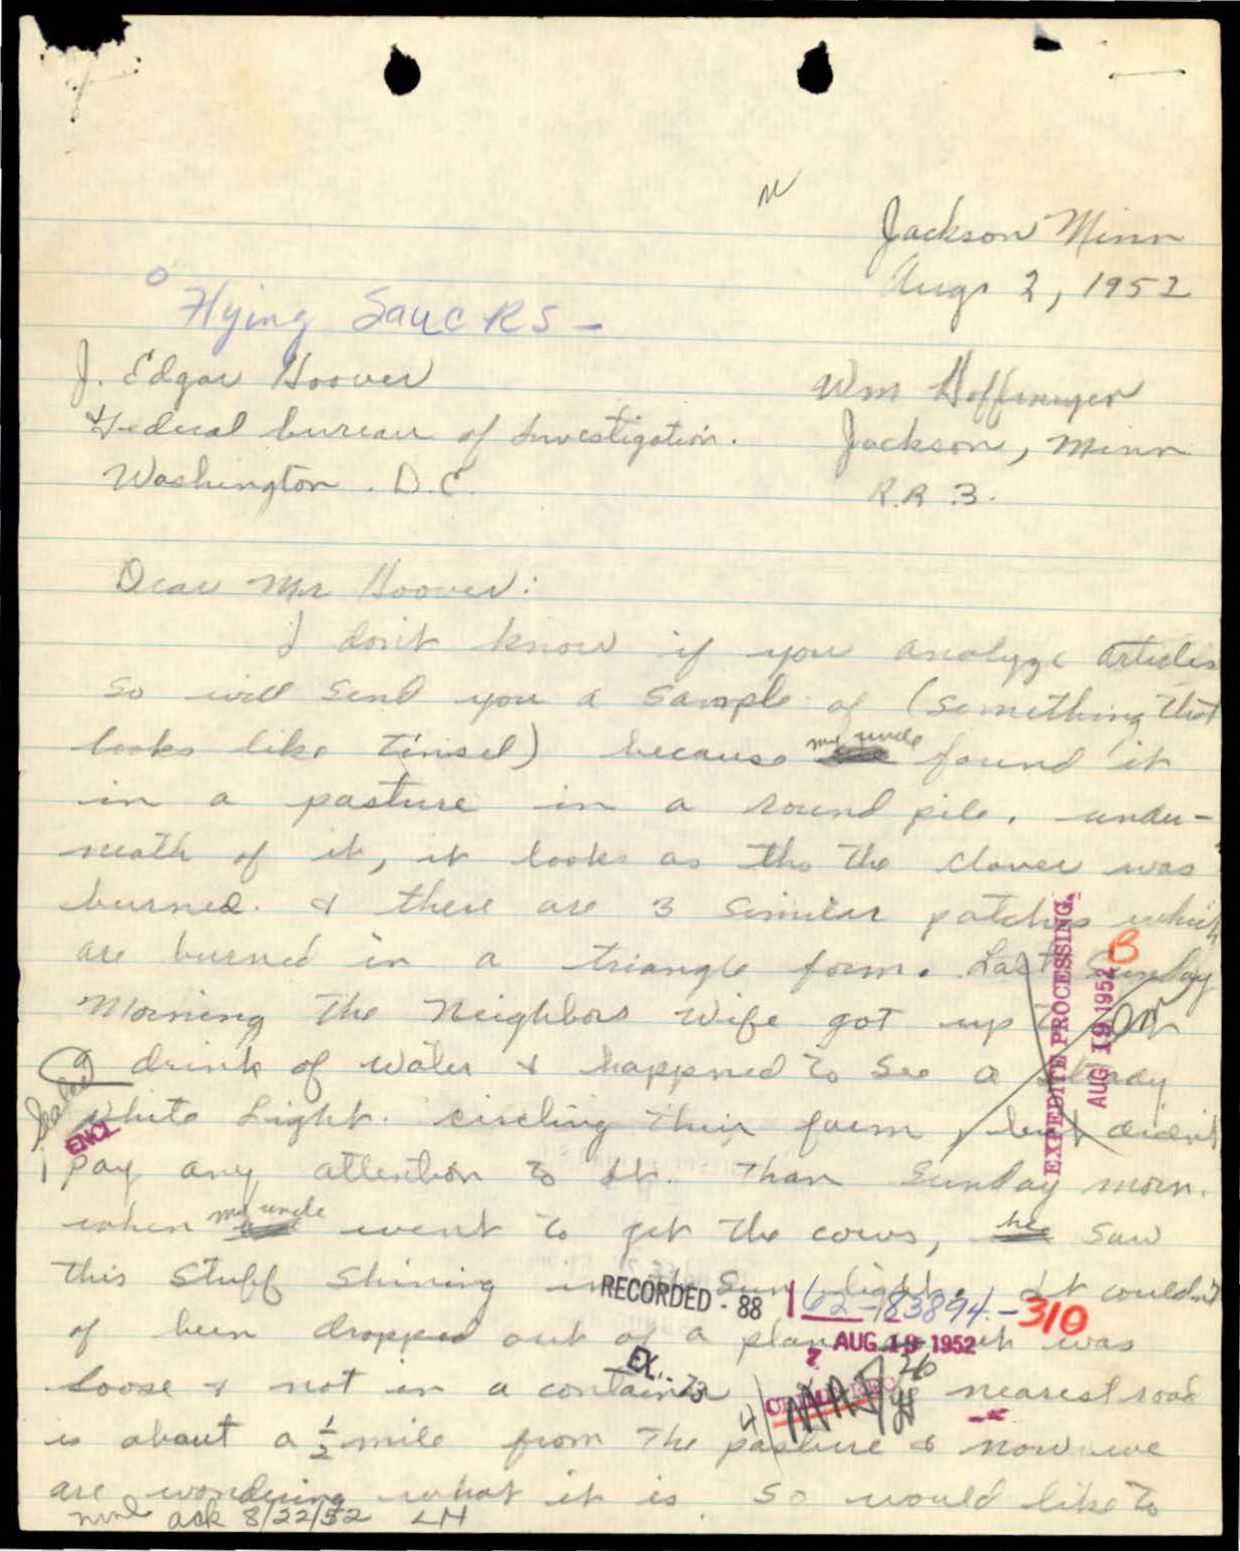 Jackson Minn
Aug. 2, 1952
Flying Saucers -
J. Edgar Hoover
Federal bureau of Investigation.
Washington. D.C.
Wm Hoffmeyer
Jackson, Minn
R.R 3.
Dear Mr Hoover:
I don't know if you analyze articles
so will send you a sample of (something that
looks like tinsel) because my uncle found it
in a pasture in a round pile. under-
neath of it, it looks as tho the clover was
burned. & there are 3 similar patches which
are burned in a triangle form. Last Sunday
Morning the Neighbors Wife got up to
a drink of water & happned to see a steady
white Light. circling their farm, but didn't
pay any attention to it. Than Sunday morn.
when my uncle went to get the cows, he saw
this stuff shining in the sun light. It couldn't
of been dropped out of a plane as it was
loose & not in a container nearest road
is about a ½ mile from the pasture & now we
are wondering what it is so would like to
EXPEDITE PROCESSING.
AUG 19 1952
B
ENCL
RECORDED - 88
62-83894-310
AUG 19 1952
EX. - 73
26
ack 8/22/52 LH